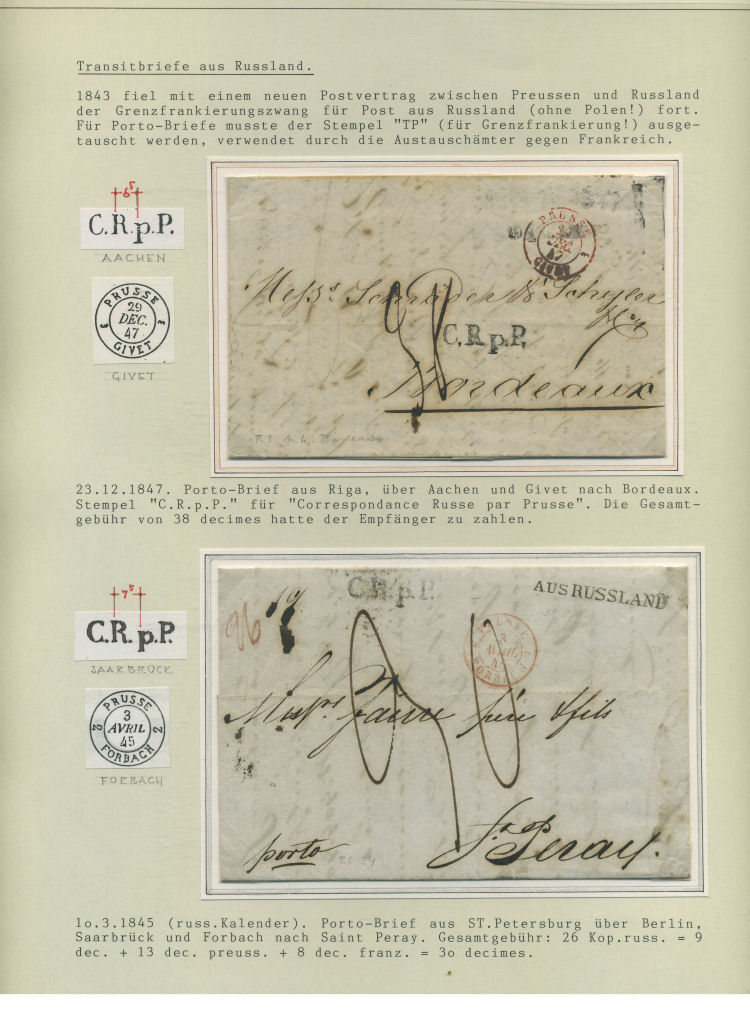 Transitbriefe aus Russland.
1843 fiel mit einem neuen Postvertrag zwischen Preussen und Russland
der Grenzfrankierungszwang für Post aus Russland (ohne Polen!) fort.
Für Porto-Briefe musste der Stempel "TP" (für Grenzfrankierung!) ausge-
tauscht werden, verwendet durch die Austauschämter gegen Frankreich.
6⁵
C.R.p.P.
AACHEN
PRUSSE
3 29 3
DEC.
47
GIVET
GIVET
PRUSSE
DEC.
47
GIVET
Bordeaux
38
C.R.p.P.
23.12.1847. Porto-Brief aus Riga, über Aachen und Givet nach Bordeaux.
Stempel "C.R.p.P." für "Correspondance Russe par Prusse". Die Gesamt-
gebühr von 38 decimes hatte der Empfänger zu zahlen.
7⁵
C.R.p.P.
SAARBRÜCK
PRUSSE
2 3 2
AVRIL
45
FORBACH
FORBACH
C.R.p.P.
AUS RUSSLAND
19
26
3
30
père & fils
porto
St. Peray.
1o.3.1845 (russ.Kalender). Porto-Brief aus ST.Petersburg über Berlin,
Saarbrück und Forbach nach Saint Peray. Gesamtgebühr: 26 Kop.russ. = 9
dec. + 13 dec. preuss. + 8 dec. franz. = 3o decimes.